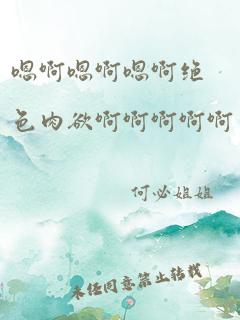 嗯啊嗯啊嗯啊绝
色肉欲啊啊啊啊啊
何必姐姐
未经同意禁止转载